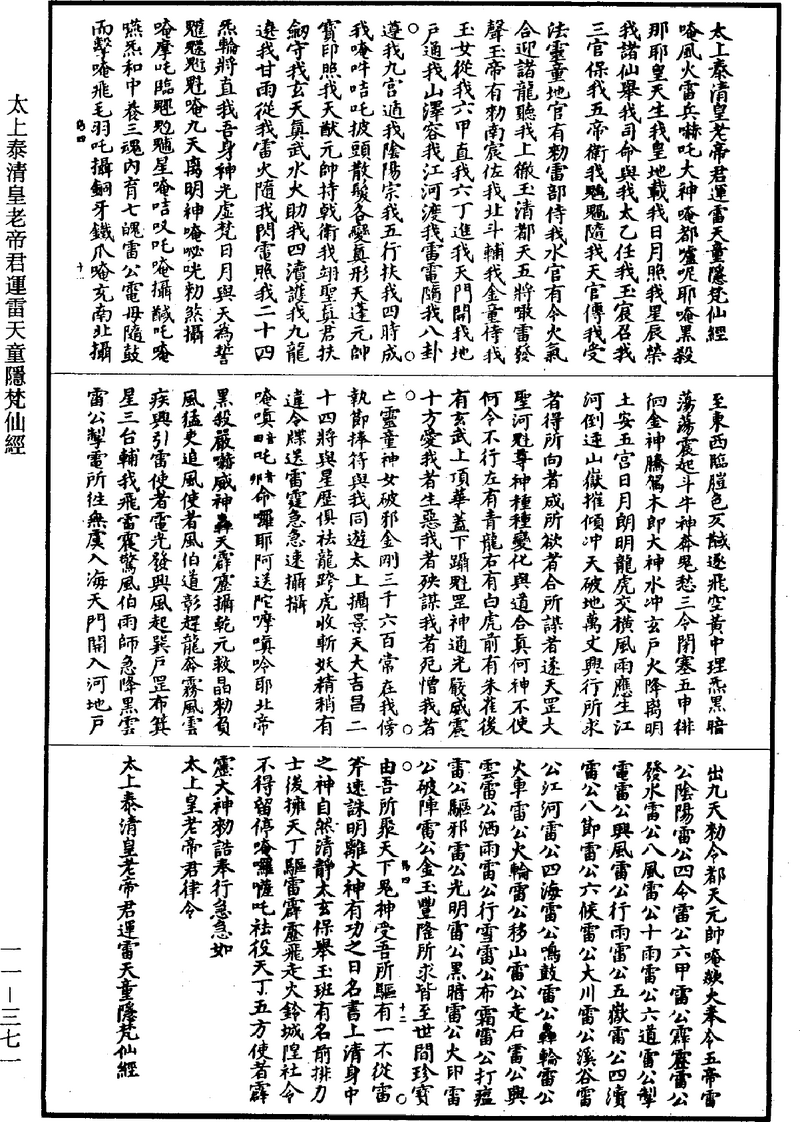 太上泰清皇老帝君運雷天童隱梵仙經
太上泰清皇老帝君運雷天童隱梵仙經
唵風火雷兵嚇吒大神唵都嚧呢耶唵黑殺
那耶皇天生我皇地載我日月照我星辰榮
我諸仙舉我司命與我太乙任我玉宸召我
三官保我五帝衛我魁魓隨我天官傳我受
法靈童地官有勑雷部侍我水官有令火氣
合迎諸龍聽我上徹玉清都天五將噉雷發
聲玉帝有勑南宸佐我北斗輔我金童侍我
玉女從我六甲直我六丁進我天門開我地
戶通我山澤容我江河渡我雷雷隨我八卦
遵我九宮遁我陰陽宗我五行扶我四時成
我唵吽咭吒披頭散髮各變真形天蓬元帥
寶印照我天猷元帥持戟衛我翊聖真君扶
劒守我玄天真武水火助我四瀆護我九龍
遶我甘雨從我雷火隨我閃電照我二十四
炁輪將直我吾身神光虛梵日月與天為誓
唵九天离明神唵唿咣勑煞攝
唵摩吒臨星唵咭吒唵攝馘吒唵
嚥炁和中養三魂內育七魄雷公電母隨鼓
而擊唵飛毛羽吒攝銅牙鐵爪唵充南北攝
至東西臨膛色馘逐飛空黃中理炁黑暗
蕩蕩震起斗牛神奔鬼愁三令閉塞五申徘
徊金神騰駕木郎大神水冲玄戶火降离明
土安五宮日月朗明龍虎交橫風雨應生江
河倒逆山嶽摧傾冲天破地萬丈興行所求
者得所向者成所欲者合所謀者遂天罡大
聖河魁尊神種種變化與道合真何神不使
何令不行左有青龍右有白虎前有朱雀後
有玄武上頂華蓋下躡魁罡神通光皎威震
十方愛我者生惡我者殃謀我者死憎我者
亡靈童神女破邪金剛三千六百常在我傍
執節捧符與我同遊太上攝景天大吉昌二
十四將與星歷俱祛龍跨虎收斬妖精稍有
違令牒送雷霆急急速攝攝
唵嗔吒命囉耶阿送陀嚤嗔唥耶北帝
黑殺嚴嚇威神轟天霹靂攝乾元救晶勑負
風猛吏追風使者風伯道彰趕龍奔霧風雲
疾興引雷使者電光發興風起巽戶罡布箕
星三台輔我飛雷震驚風伯雨師急降黑雲
雷公掣電所往無虞入海天門開入河地戶
出九天勑令都天元帥唵歘火奉令五帝雷
公陰陽雷公四令雷公六甲雷公霹靂雷公
發水雷公八風雷公十雨雷公六道雷公掣
電雷公興風雷公行雨雷公五嶽雷公四瀆
雷公八節雷公六候雷公大川雷公溪谷雷
公江河雷公四海雷公鳴鼓雷公轟輪雷公
火車雷公火輪雷公移山雷公走石雷公興
雲雷公洒雨雷公行雪雷公布霜雷公打瘟
雷公驅邪雷公光明雷公黑暗雷公大印雷
公破陣雷公金玉豐隆所求皆至世間珍寶
由吾所聚天下鬼神受吾所驅有一不從雷
斧速誅明離大神有功之日名書上清身中
之神自然清靜太玄保舉玉班有名前排力
士後擁天丁驅雷霹靂飛走火鈴城隍社令
不得留停唵囉吒祛役天丁五方使者霹
靂大神勑誥奉行急急如
太上皇老帝君律令
太上泰清皇老帝君運雷天童隱梵仙經
一一—三七一